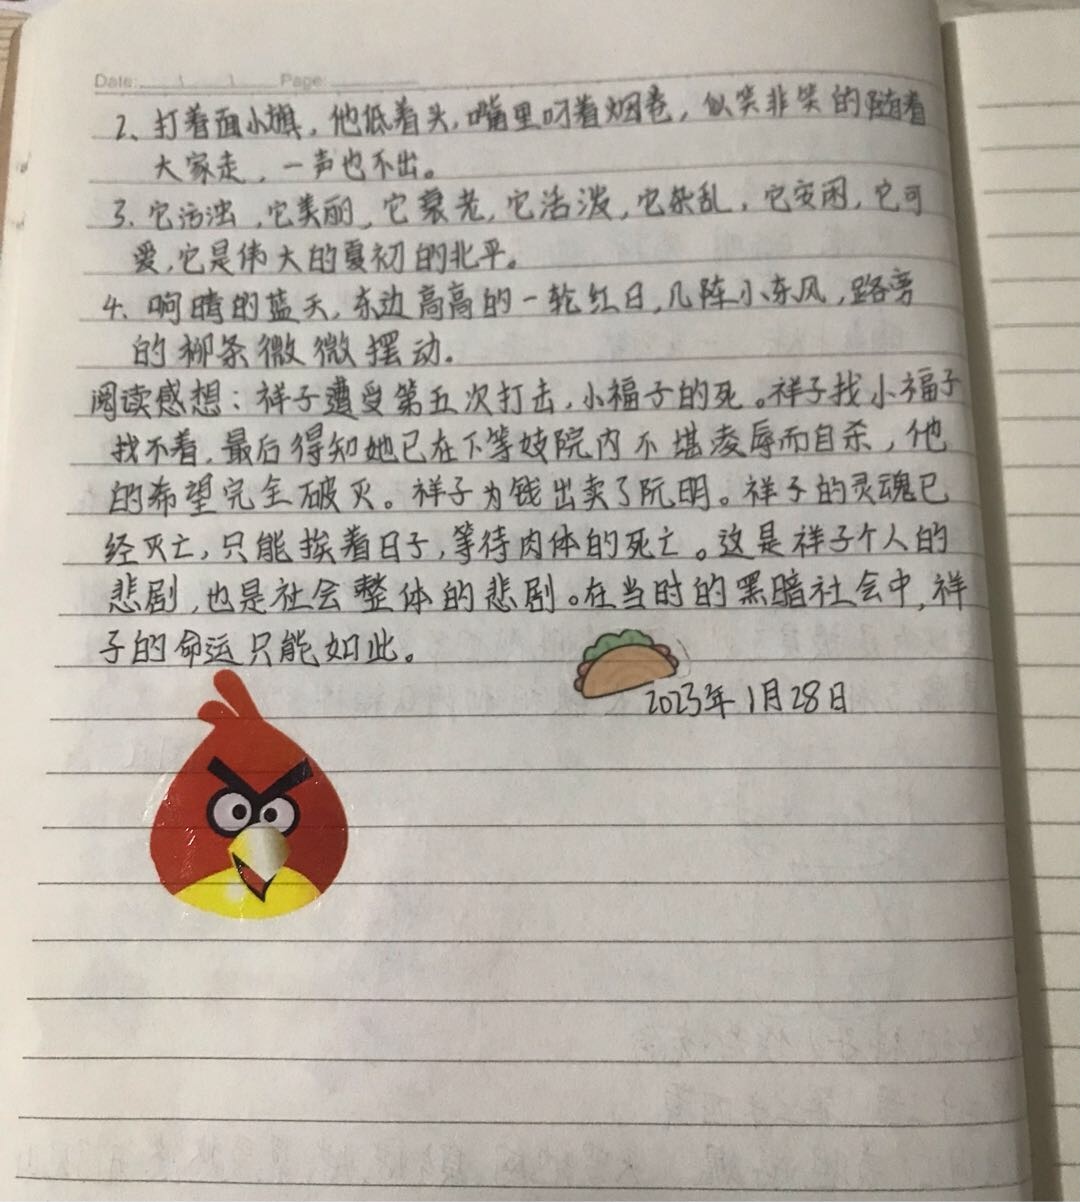 Date: Page:
2、打着面小旗，他低着头，嘴里叼着烟卷，似笑非笑的随着
大家走，一声也不出。
3、它污浊，它美丽，它衰老，它活泼，它杂乱，它安闲，它可
爱，它是伟大的夏初的北平。
4、响晴的蓝天，东边高高的一轮红日，几阵小东风，路旁
的柳条微微摆动.
阅读感想：祥子遭受第五次打击，小福子的死。祥子找小福子
找不着，最后得知她已在下等妓院内不堪凌辱而自杀，他
的希望完全破灭。祥子为钱出卖了阮明。祥子的灵魂已
经灭亡，只能挨着日子，等待肉体的死亡。这是祥子个人的
悲剧，也是社会整体的悲剧。在当时的黑暗社会中，祥
子的命运只能如此。
2023年1月28日